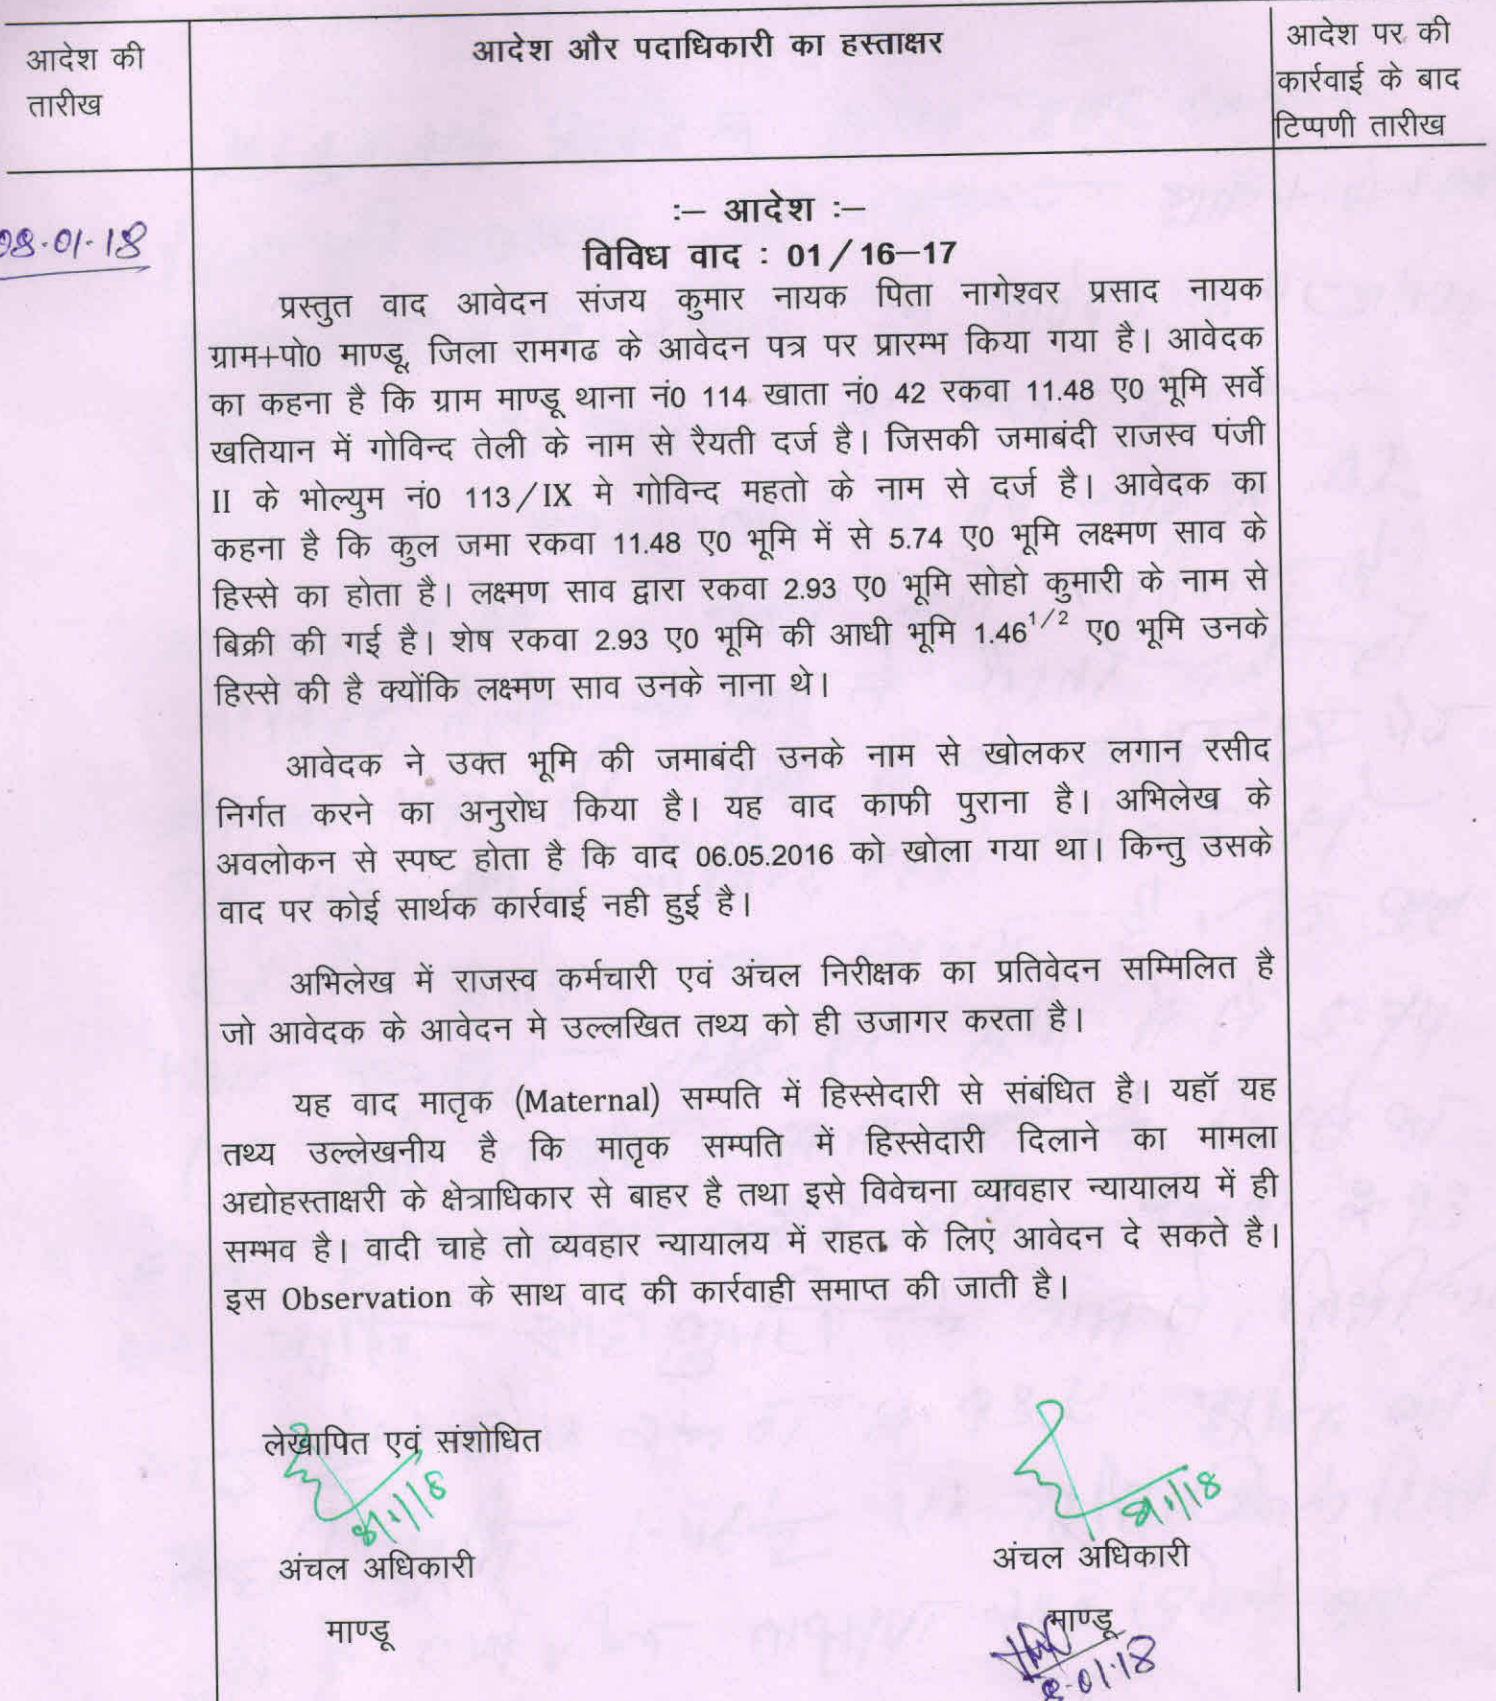 आदेश की
तारीख
आदेश और पदाधिकारी का हस्ताक्षर
आदेश पर की
कार्रवाई के बाद
टिप्पणी तारीख
08.01.18
:– आदेश :–
विविध वाद : 01/16–17
प्रस्तुत वाद आवेदन संजय कुमार नायक पिता नागेश्वर प्रसाद नायक
ग्राम+पो0 माण्डू, जिला रामगढ के आवेदन पत्र पर प्रारम्भ किया गया है। आवेदक
का कहना है कि ग्राम माण्डू थाना नं0 114 खाता नं0 42 रकवा 11.48 ए0 भूमि सर्वे
खतियान में गोविन्द तेली के नाम से रैयती दर्ज है। जिसकी जमाबंदी राजस्व पंजी
II के भोल्युम नं0 113/IX मे गोविन्द महतो के नाम से दर्ज है। आवेदक का
कहना है कि कुल जमा रकवा 11.48 ए0 भूमि में से 5.74 ए0 भूमि लक्ष्मण साव के
हिस्से का होता है। लक्ष्मण साव द्वारा रकवा 2.93 ए0 भूमि सोहो कुमारी के नाम से
बिक्री की गई है। शेष रकवा 2.93 ए0 भूमि की आधी भूमि 1.46¹/² ए0 भूमि उनके
हिस्से की है क्योंकि लक्ष्मण साव उनके नाना थे।
आवेदक ने उक्त भूमि की जमाबंदी उनके नाम से खोलकर लगान रसीद
निर्गत करने का अनुरोध किया है। यह वाद काफी पुराना है। अभिलेख के
अवलोकन से स्पष्ट होता है कि वाद 06.05.2016 को खोला गया था। किन्तु उसके
वाद पर कोई सार्थक कार्रवाई नही हुई है।
अभिलेख में राजस्व कर्मचारी एवं अंचल निरीक्षक का प्रतिवेदन सम्मिलित है
जो आवेदक के आवेदन मे उल्लखित तथ्य को ही उजागर करता है।
यह वाद मातृक (Maternal) सम्पति में हिस्सेदारी से संबंधित है। यहॉ यह
तथ्य उल्लेखनीय है कि मातृक सम्पति में हिस्सेदारी दिलाने का मामला
अद्योहस्ताक्षरी के क्षेत्राधिकार से बाहर है तथा इसे विवेचना व्यावहार न्यायालय में ही
सम्भव है। वादी चाहे तो व्यवहार न्यायालय में राहत के लिएं आवेदन दे सकते है।
इस Observation के साथ वाद की कार्रवाही समाप्त की जाती है।
लेखापित एवं संशोधित
8/1/18
8/1/18
अंचल अधिकारी
अंचल अधिकारी
माण्डू
माण्डू
8.01.18